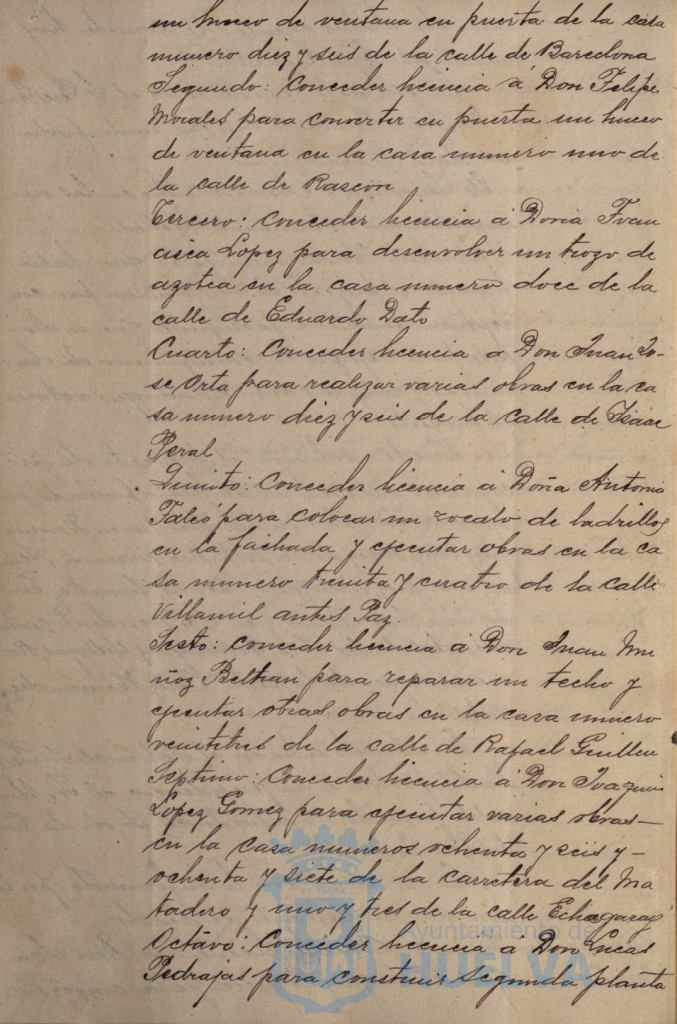 un hueco de ventana en puerta de la casa
numero diez y seis de la calle de Barcelona
Segundo: Conceder licencia á Don Felipe
Morales para converter en puerta un hueco
de ventana en la casa numero uno de
la calle de Rascon
Tercero: Conceder licencia á Doña Fran
cisca Lopez para desenvolver un trozo de
azotea en la casa numero doce de la
calle de Eduardo Dato
Cuarto: Conceder licencia a Don Juan Jo-
se Orta para realizar varias obras en la ca
sa numero diez y seis de la calle de Isaac
Peral
Quinto: Conceder licencia á Doña Antonia
Falcó para colocar un zocalo de ladrillos
en la fachada y ejecutar obras en la ca
sa numero treinta y cuatro de la calle
Villamil antes Paz.
Sesto: Conceder licencia á Don Juan Mu
ñoz Beltran para reparar un techo y
ejecutar otras obras en la casa numero
veintitres de la calle de Rafael Guillen
Septimo: Conceder licencia á Don Joaquin
Lopez Gomez para ejecutar varias obras—
en la casa numeros ochenta y seis y—
ochenta y siete de la carretera del Ma
tadero y uno y tres de la calle Echegaray
Octavo: Conceder licencia á Don Lucas
Pedrajas para construir segunda planta
Ayuntamiento de
HUELVA